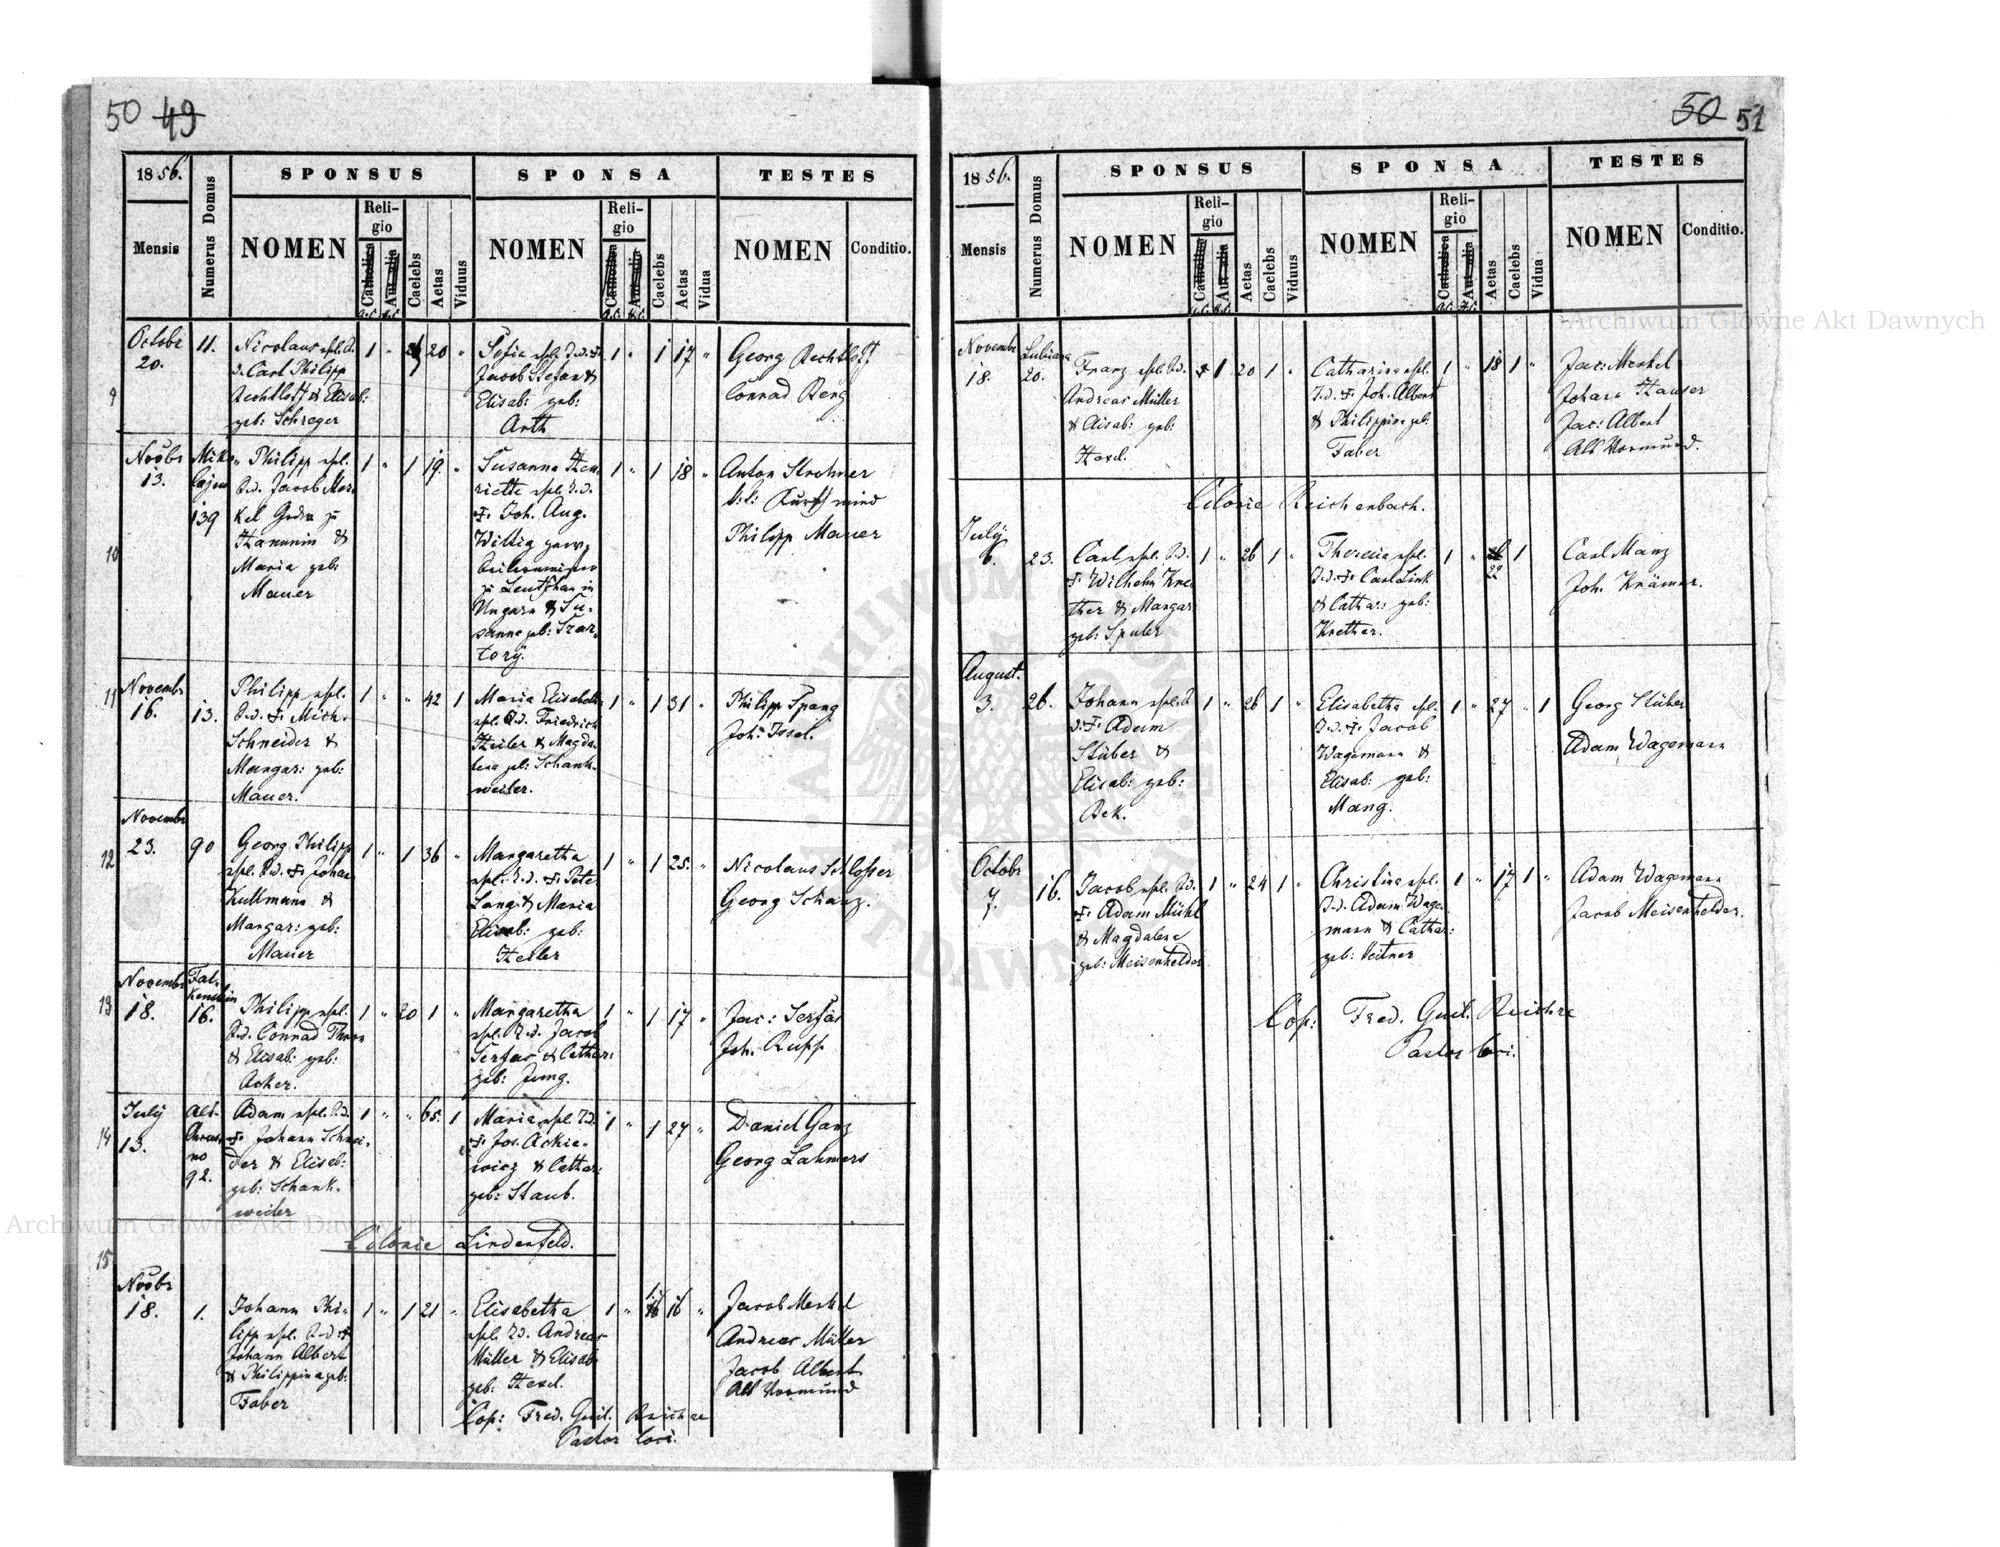 50 49
1856.
Mensis
Numerus Domus
SPONSUS
NOMEN
Religio
Catholica
Aut alia
Caelebs
Aetas
Viduus
SPONSA
NOMEN
Religio
Catholica
Aut alia
Caelebs
Aetas
Vidua
TESTES
NOMEN
Conditio.
9
Octobr
20.
11.
Nicolaus ehl. S.
d. Carl Philipp
Rechtlof & Elisab:
geb: Schreger
1 " 20 "
Sofia ehl. T. d. +
Jacob Stefan &
Elisab: geb:
Arth
1 " 1 17 "
Georg Rechtlof
Conrad Berg
10
Novbr
13.
139
Philipp ehl.
S. d. Jacob Mer-
kel
Hanunin &
Maria geb:
Mauer
1 " 1 19. "
Susanna Hen-
riette ehl. T. d.
+ Joh. Aug.
Wittig
zu Leutschau in
Ungarn & Su-
sanna geb: Szar-
tory.
1 " 1 18 "
Anton Strohmer
Philipp Mauer
11
Novembr
16.
13.
Philipp ehl.
S. d. + Mich.
Schneider &
Margar: geb:
Mauer.
1 " " 42 1
Maria Elisabeth
ehl. T. d. Friedrich
Heiler & Magda-
lena geb: Schank-
weiler.
1 " 1 31 "
Philipp Spang
Joh: Issel.
12
Novembr
23.
90
Georg Philipp
ehl. S. d. + Johan
Kullmann &
Margar: geb:
Mauer
1 " 1 36 "
Margaretha
ehl. T. d. + Pete
Lang & Maria
Elisab: geb:
Heiler
1 " 1 25. "
Nicolaus Schlosser
Georg Schanz.
13
Novembr
18.
Falkenstein
16.
Philipp ehl.
S. d. Conrad
& Elisab: geb:
Acker.
1 " 20 1 "
Margaretha
ehl. T. d. Jacob
Serfas & Cathar:
geb: Jung.
1 " 1 17 "
Jac: Serfas
Joh. Rupp
14
July
13.
Alt-
Chrus-
no
92.
Adam ehl. S. d.
+ Johann Schnei-
der & Elisab:
geb: Schank-
weiler
1 " " 65. 1
Maria ehl. T. d.
+ Jos. Ackie-
wicz & Cathar:
geb: Staub.
1 " 1 27 "
Daniel Ganz
Georg Lahmers
Colonie Lindenfeld.
15
Novbr
18.
1.
Johann Phi-
lipp ehl. S. d. +
Johann Albert
& Philippina geb:
Faber
1 " 1 21 "
Elisabetha
ehl. T. d. Andreas
Müller & Elisab:
geb: Hexel.
1 " 16 "
Jacob Merkel
Andreas Müller
Jacob Albert
Als Vormund
Cop: Fred. Guil. Reichre
Pastor loci.
50 51
1856.
Mensis
Numerus Domus
SPONSUS
NOMEN
Religio
Catholica
Aut alia
Aetas
Caelebs
Viduus
SPONSA
NOMEN
Religio
Catholica
Aut alia
Aetas
Caelebs
Vidua
TESTES
NOMEN
Conditio.
Novembr
18.
20.
Franz ehl. S. d.
Andreas Müller
& Elisab: geb:
Hexel.
1 20 1 "
Catharina ehl.
T. d. + Joh. Albert
& Philippina geb:
Faber
1 " 18 1 "
Jac: Merkel
Johann Hauser
Jac: Albert
Als Vormund.
Colonie Reichenbach.
July
6.
23.
Carl ehl. S. d.
+ Wilhelm Kre-
ther & Margar:
geb: Spuler
1 " 26 1 "
Theresia ehl.
T. d. + Carl Link
& Cathar: geb:
Krether.
1 " 22 1
Carl Manz
Joh. Krämer.
August.
3.
26.
Johann ehl. S.
d. + Adam
Stüber &
Elisab: geb:
Bek.
1 " 26 1 "
Elisabetha ehl.
T. d. + Jacob
Wagemann &
Elisab: geb:
Mang.
1 " 27 " 1
Georg Stüber
Adam Wagemann
Octobr
7.
16.
Jacob ehl. S. d.
+ Adam Mühl
& Magdalena
geb: Meisenhelder
1 " 24 1 "
Christina ehl.
T. d. Adam Wage-
mann & Cathar:
geb: Veitner
1 " 17 1 "
Adam Wagemann
Jacob Meisenhelder.
Cop: Fred. Guil. Reichre
Pastor loci.
Archiwum Główne Akt Dawnych
Archiwum Główne Akt Dawnych